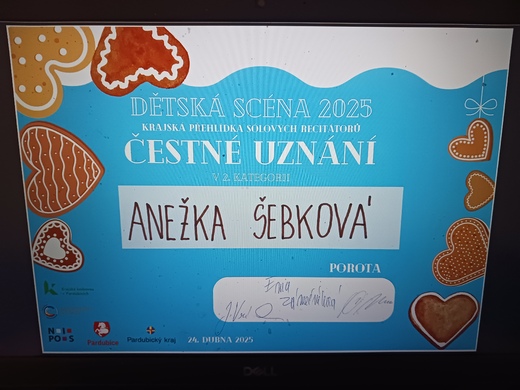 DĚTSKÁ SCÉNA 2025
KRAJSKÁ PŘEHLÍDKA SÓLOVÝCH RECITÁTORŮ
ČESTNÉ UZNÁNÍ
V 2. KATEGORII
ANEŽKA ŠEBKOVÁ
POROTA
Ema
Zámečníková
NIPOS
Pardubice
Pardubický kraj
24. DUBNA 2025
DELL